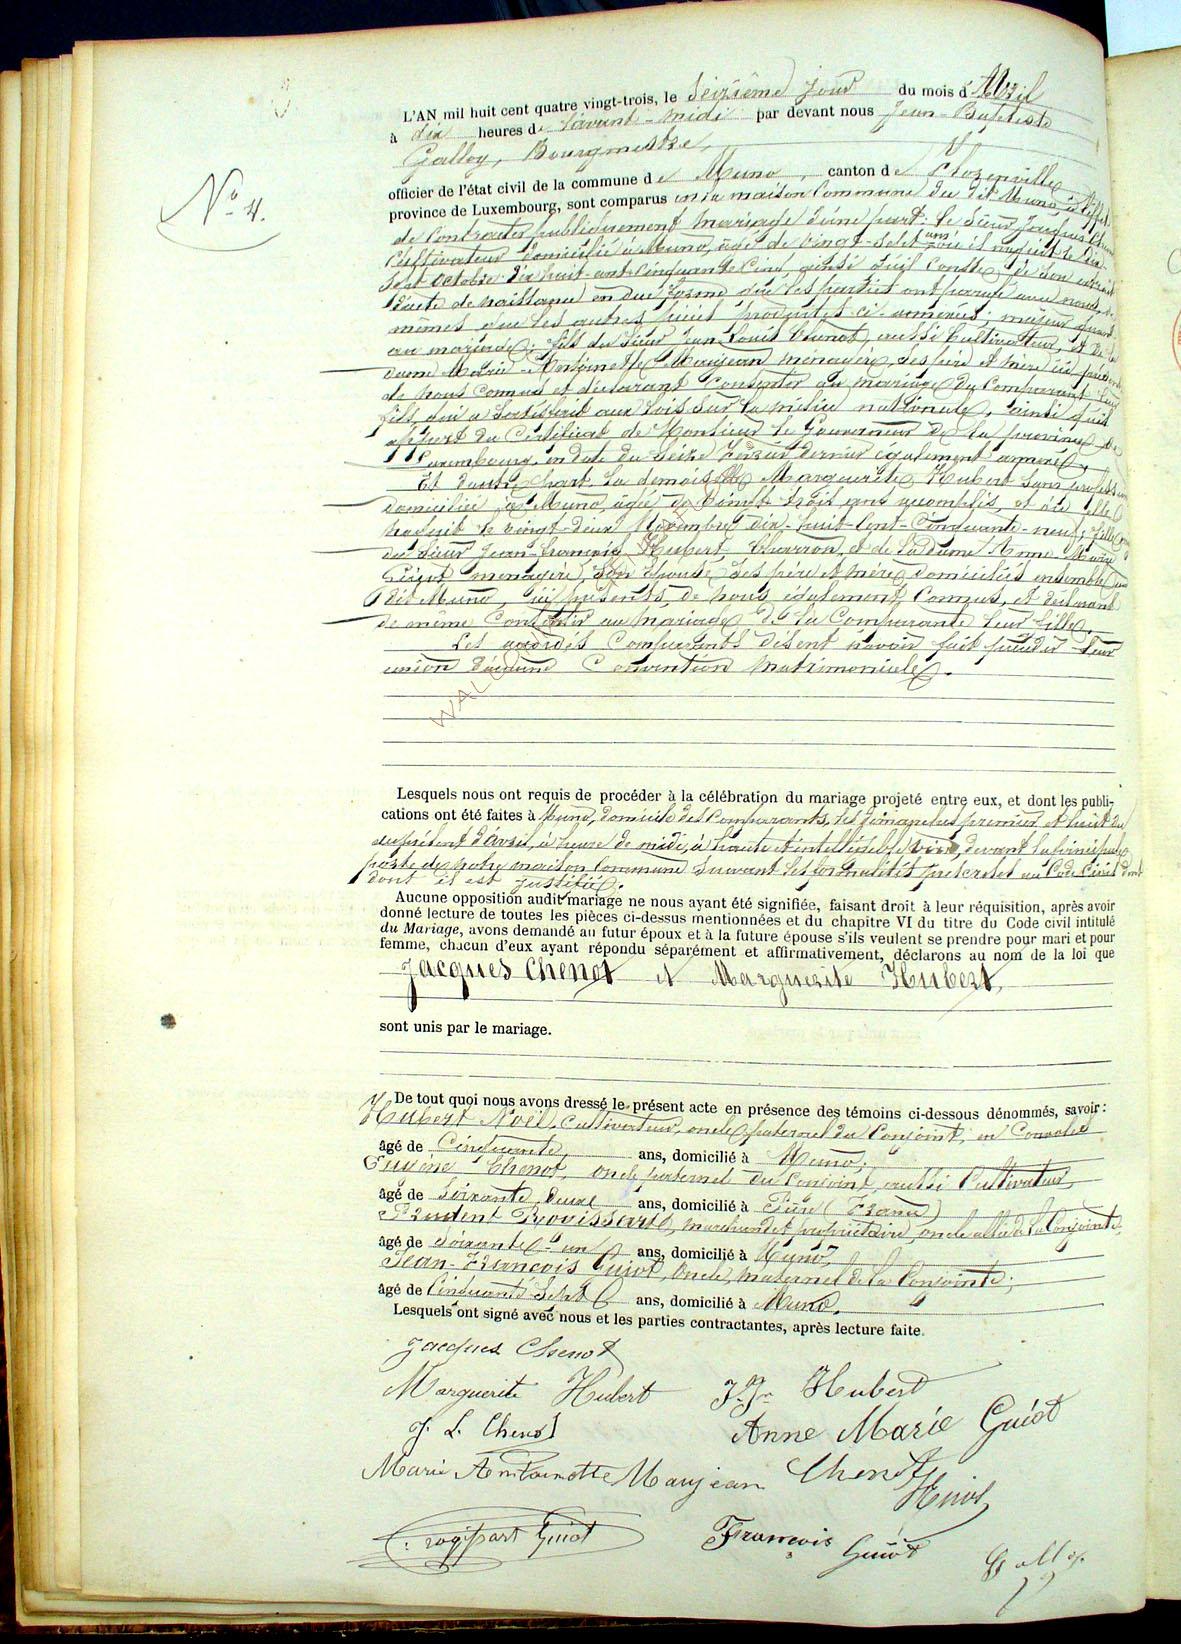 L'AN mil huit cent quatre vingt-trois, le Seizième jour du mois d'Avril
à dix heures de l'avant-midi par devant nous Jean-Baptiste
Galloy, Bourgmestre,
N° 4.
officier de l'état civil de la commune de Muno, canton de Florenville
province de Luxembourg, sont comparus en la maison Commune du dit Muno à l'effet
de Contracter publiquement mariage d'une part: le Sieur Jacques Chenot
Cultivateur domicilié à Muno, âgé de vingt-sept ans où il naquit le dix-
sept octobre dix huit-cent-cinquante Cinq, ainsi qu'il Conste de son extrait
d'acte de naissance en due forme que les parties ont par
mêmes que les autres pièces produites ci-annexées; majeur quant
au mariage; fils du Sieur Jean Louis Chenot, aussi Cultivateur, et de la
dame Marie-Antoinette Maujean ménagère, ses père et mère ici présents
de nous Connus et déclarant Consentir au mariage du Comparant leur
fils, qui a satisfait aux lois sur la milice nationale, ainsi qu'il
appert du Certificat de Monsieur le Gouverneur de la province de
Luxembourg en date du seize Février dernier également annexé,
Et d'autre part La demoiselle Marguerite Hubert sans profession
domiciliée à Muno âgée de vingt-trois ans accomplis, et où elle
naquit le vingt-deux Novembre dix-huit-Cent-Cinquante-neuf; fille
du Sieur Jean-François Hubert, Charron, et de la Dame Anne-Marie
Guiot ménagère, son épouse ses père et mère domiciliés ensemble au
dit Muno, ici présents de nous également Connus, et déclarant
de même Consentir au mariage de la Comparante leur fille.
Les accordés Comparants disent n'avoir fait précéder leur
union d'aucune Convention matrimoniale.
Lesquels nous ont requis de procéder à la célébration du mariage projeté entre eux, et dont les publi-
cations ont été faites à Muno, domicile des Comparants, les dimanches premier et huit du
du présent d'avril, à heure de midi, à haute et intelligible voix, devant la principale
porte de notre maison Commune suivant les formalités prescrites au Code Civil dont
dont il est justifié.
Aucune opposition audit mariage ne nous ayant été signifiée, faisant droit à leur réquisition, après avoir
donné lecture de toutes les pièces ci-dessus mentionnées et du chapitre VI du titre du Code civil intitulé
du Mariage, avons demandé au futur époux et à la future épouse s'ils veulent se prendre pour mari et pour
femme, chacun d'eux ayant répondu séparément et affirmativement, déclarons au nom de la loi que
Jacques Chenot et Marguerite Hubert,
sont unis par le mariage.
De tout quoi nous avons dressé le présent acte en présence des témoins ci-dessous dénommés, savoir:
Hubert Noël, Cultivateur, oncle paternel du Conjoint,
âgé de Cinquante, ans, domicilié à Muno;
Eugène Chenot, oncle paternel du Conjoint, aussi Cultivateur,
âgé de Soixante deux ans, domicilié à Pure (France)
Prudent Rogissart, marchand et propriétaire, oncle allié de la Conjointe,
âgé de Soixante-un ans, domicilié à Muno,
Jean-François Guiot, Oncle maternel de la Conjointe;
âgé de Cinquante-Sept ans, domicilié à Muno.
Lesquels ont signé avec nous et les parties contractantes, après lecture faite.
Jacques Chenot
Marguerite Hubert J. Fr. Hubert
J. L. Chenot Anne Marie Guiot
Marie Antoinette Maujean Chenot
rogissart Guiot François Guiot Galloy